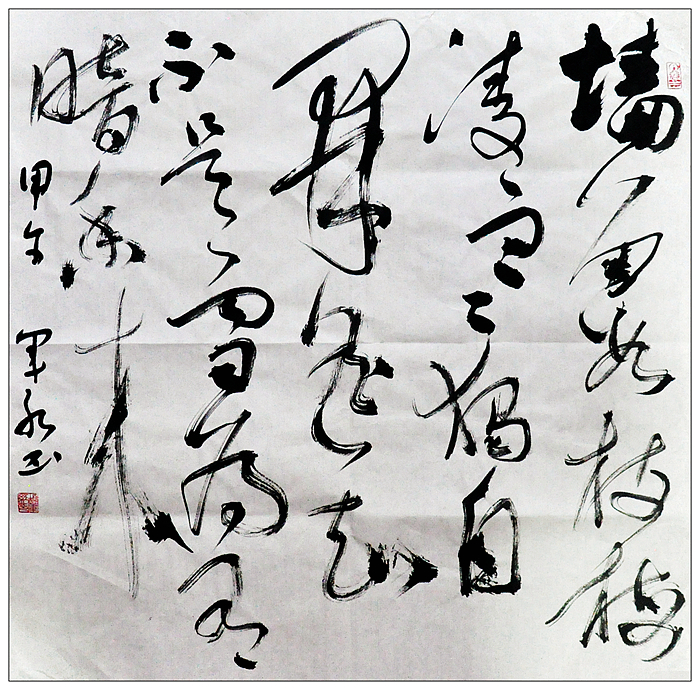 墙角数枝梅
凌寒独自
開遥知
不是雪为有
暗香来
甲午